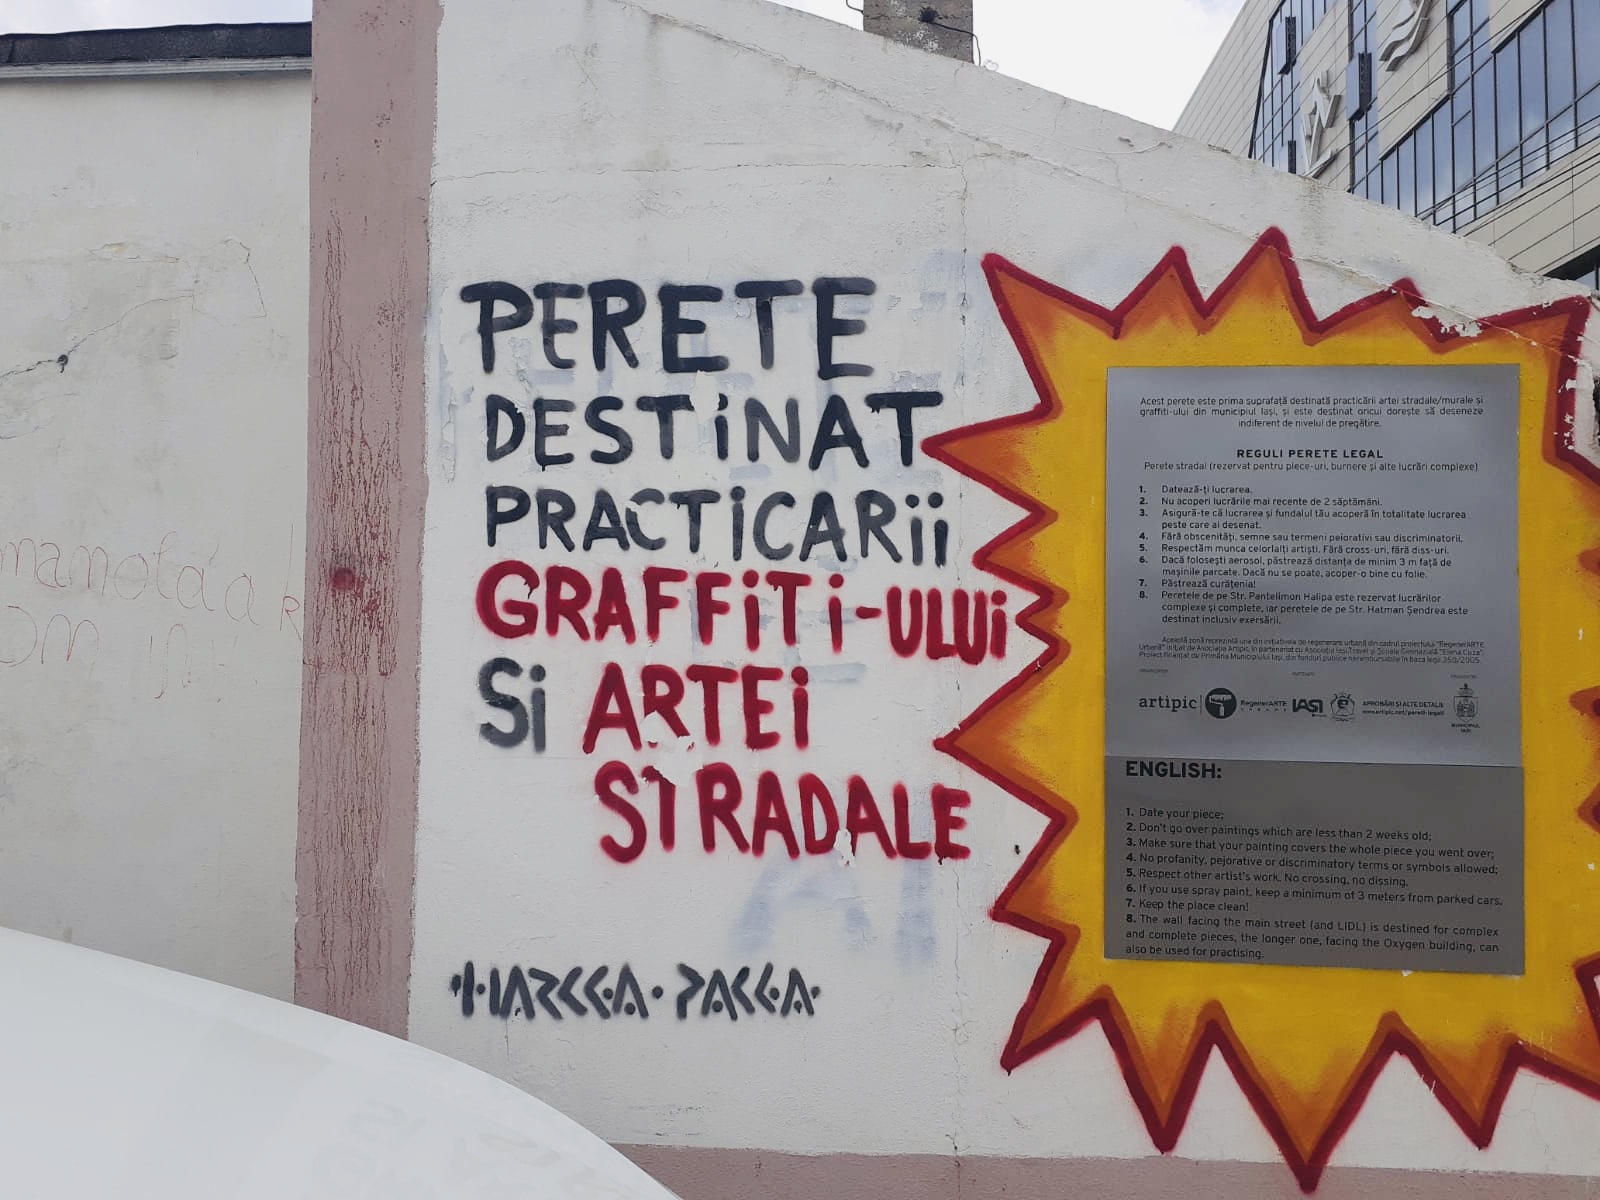 PERETE
DESTINAT
PRACTICARII
GRAFFITI-ULUI
SI ARTEI
STRADALE
Acest perete este prima suprafață destinată practicării artei stradale/murale și
graffiti-ului din municipiul Iași, și este destinat oricui dorește să deseneze
indiferent de nivelul de pregătire.
REGULI PERETE LEGAL
Perete stradal (rezervat pentru piece-uri, burnere și alte lucrări complexe)
1. Datează-ți lucrarea.
2. Nu acoperi lucrările mai recente de 2 săptămâni.
3. Asigură-te că lucrarea și fundalul tău acoperă în totalitate lucrarea
peste care ai desenat.
4. Fără obscenități, semne sau termeni peiorativi sau discriminatorii.
5. Respectăm munca celorlalți artiști. Fără cross-uri, fără diss-uri.
6. Dacă folosești aerosol, păstrează distanța de minim 3 m față de
mașinile parcate. Dacă nu se poate, acoper-o bine cu folie.
7. Păstrează curățenia!
8. Peretele de pe Str. Pantelimon Halipa este rezervat lucrărilor
complexe și complete, iar peretele de pe Str. Hatman Șendrea este
destinat inclusiv exersării.
Această zonă reprezintă una din inițiativele de regenerare urbană din cadrul proiectului "RegenerARTE
Urbană" inițiat de Asociația Artipic, în parteneriat cu Asociația Iași Travel și Școala Gimnazială "Elena Cuza".
Proiect finanțat de Primăria Municipiului Iași, din fonduri publice nerambursabile în baza legii 350/2005.
artipic RegenerARTE URBANĂ IASI APROBĂRI ȘI ALTE DETALII:
www.artipic.net/pereti-legali
MUNICIPIUL
IAȘI
ENGLISH:
1. Date your piece;
2. Don't go over paintings which are less than 2 weeks old;
3. Make sure that your painting covers the whole piece you went over;
4. No profanity, pejorative or discriminatory terms or symbols allowed;
5. Respect other artist's work. No crossing, no dissing.
6. If you use spray paint, keep a minimum of 3 meters from parked cars.
7. Keep the place clean!
8. The wall facing the main street (and LIDL) is destined for complex
and complete pieces, the longer one, facing the Oxygen building, can
also be used for practising.